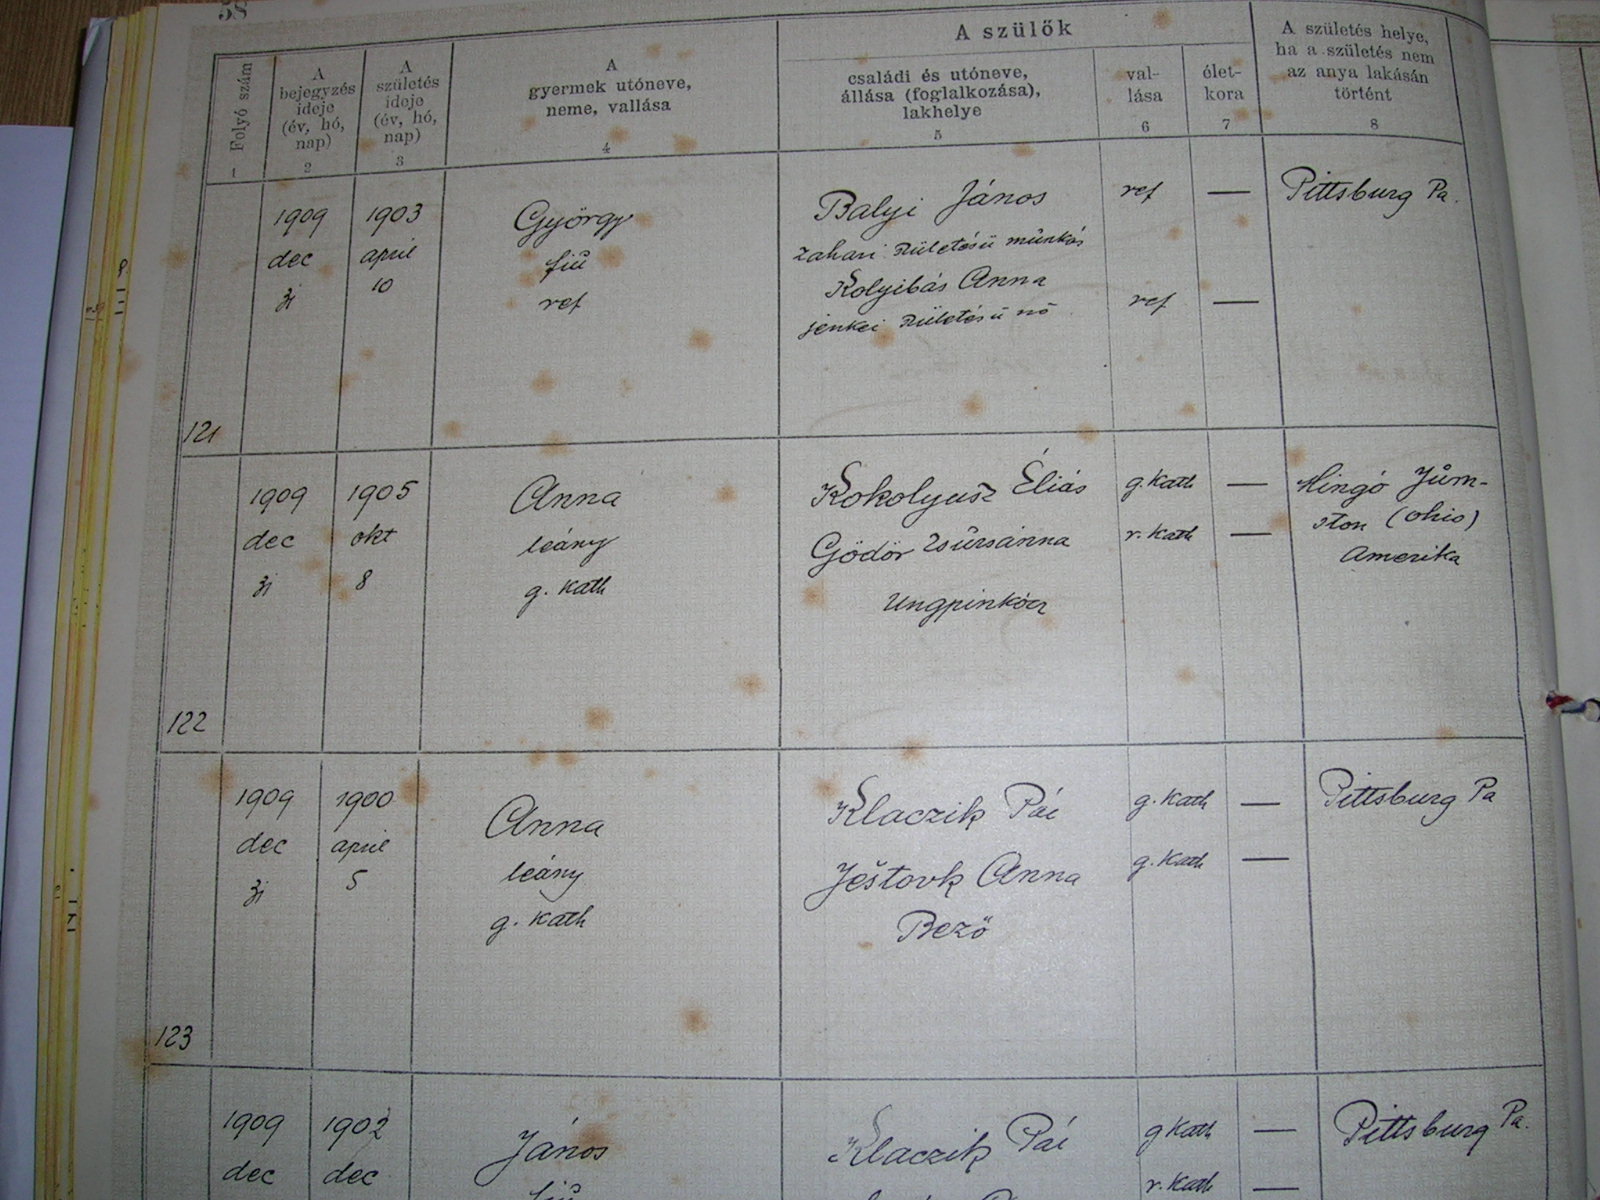 58
Folyó szám
1
A
bejegyzés
ideje
(év, hó,
nap)
2
A
születés
ideje
(év, hó,
nap)
3
A
gyermek utóneve,
neme, vallása
4
A szülők
családi és utóneve,
állása (foglalkozása),
lakhelye
5
val-
lása
6
élet-
kora
7
A születés helye,
ha a születés nem
az anya lakásán
történt
8
121
1909
dec
31
1903
april
10
György
fiú
ref
Balyi János
zahari születésü munkás
Kolyibás Anna
jenkei születésü nő
ref —
ref —
Pittsburg Pa.
122
1909
dec
31
1905
okt
8
Anna
leány
g. kath
Kokolyusz Éliás
Gödör Zsuzsánna
Ungpinkócz
g. kath —
r. kath —
Mingó
(Ohio)
Amerika
123
1909
dec
31
1900
april
5
Anna
leány
g. kath
Klaczik Pál
Ještovk Anna
Bező
g. kath —
g. kath —
Pittsburg Pa
1909
dec
1902
dec
János
fiú
Klaczik Pál
g kath —
r. kath —
Pittsburg Pa.